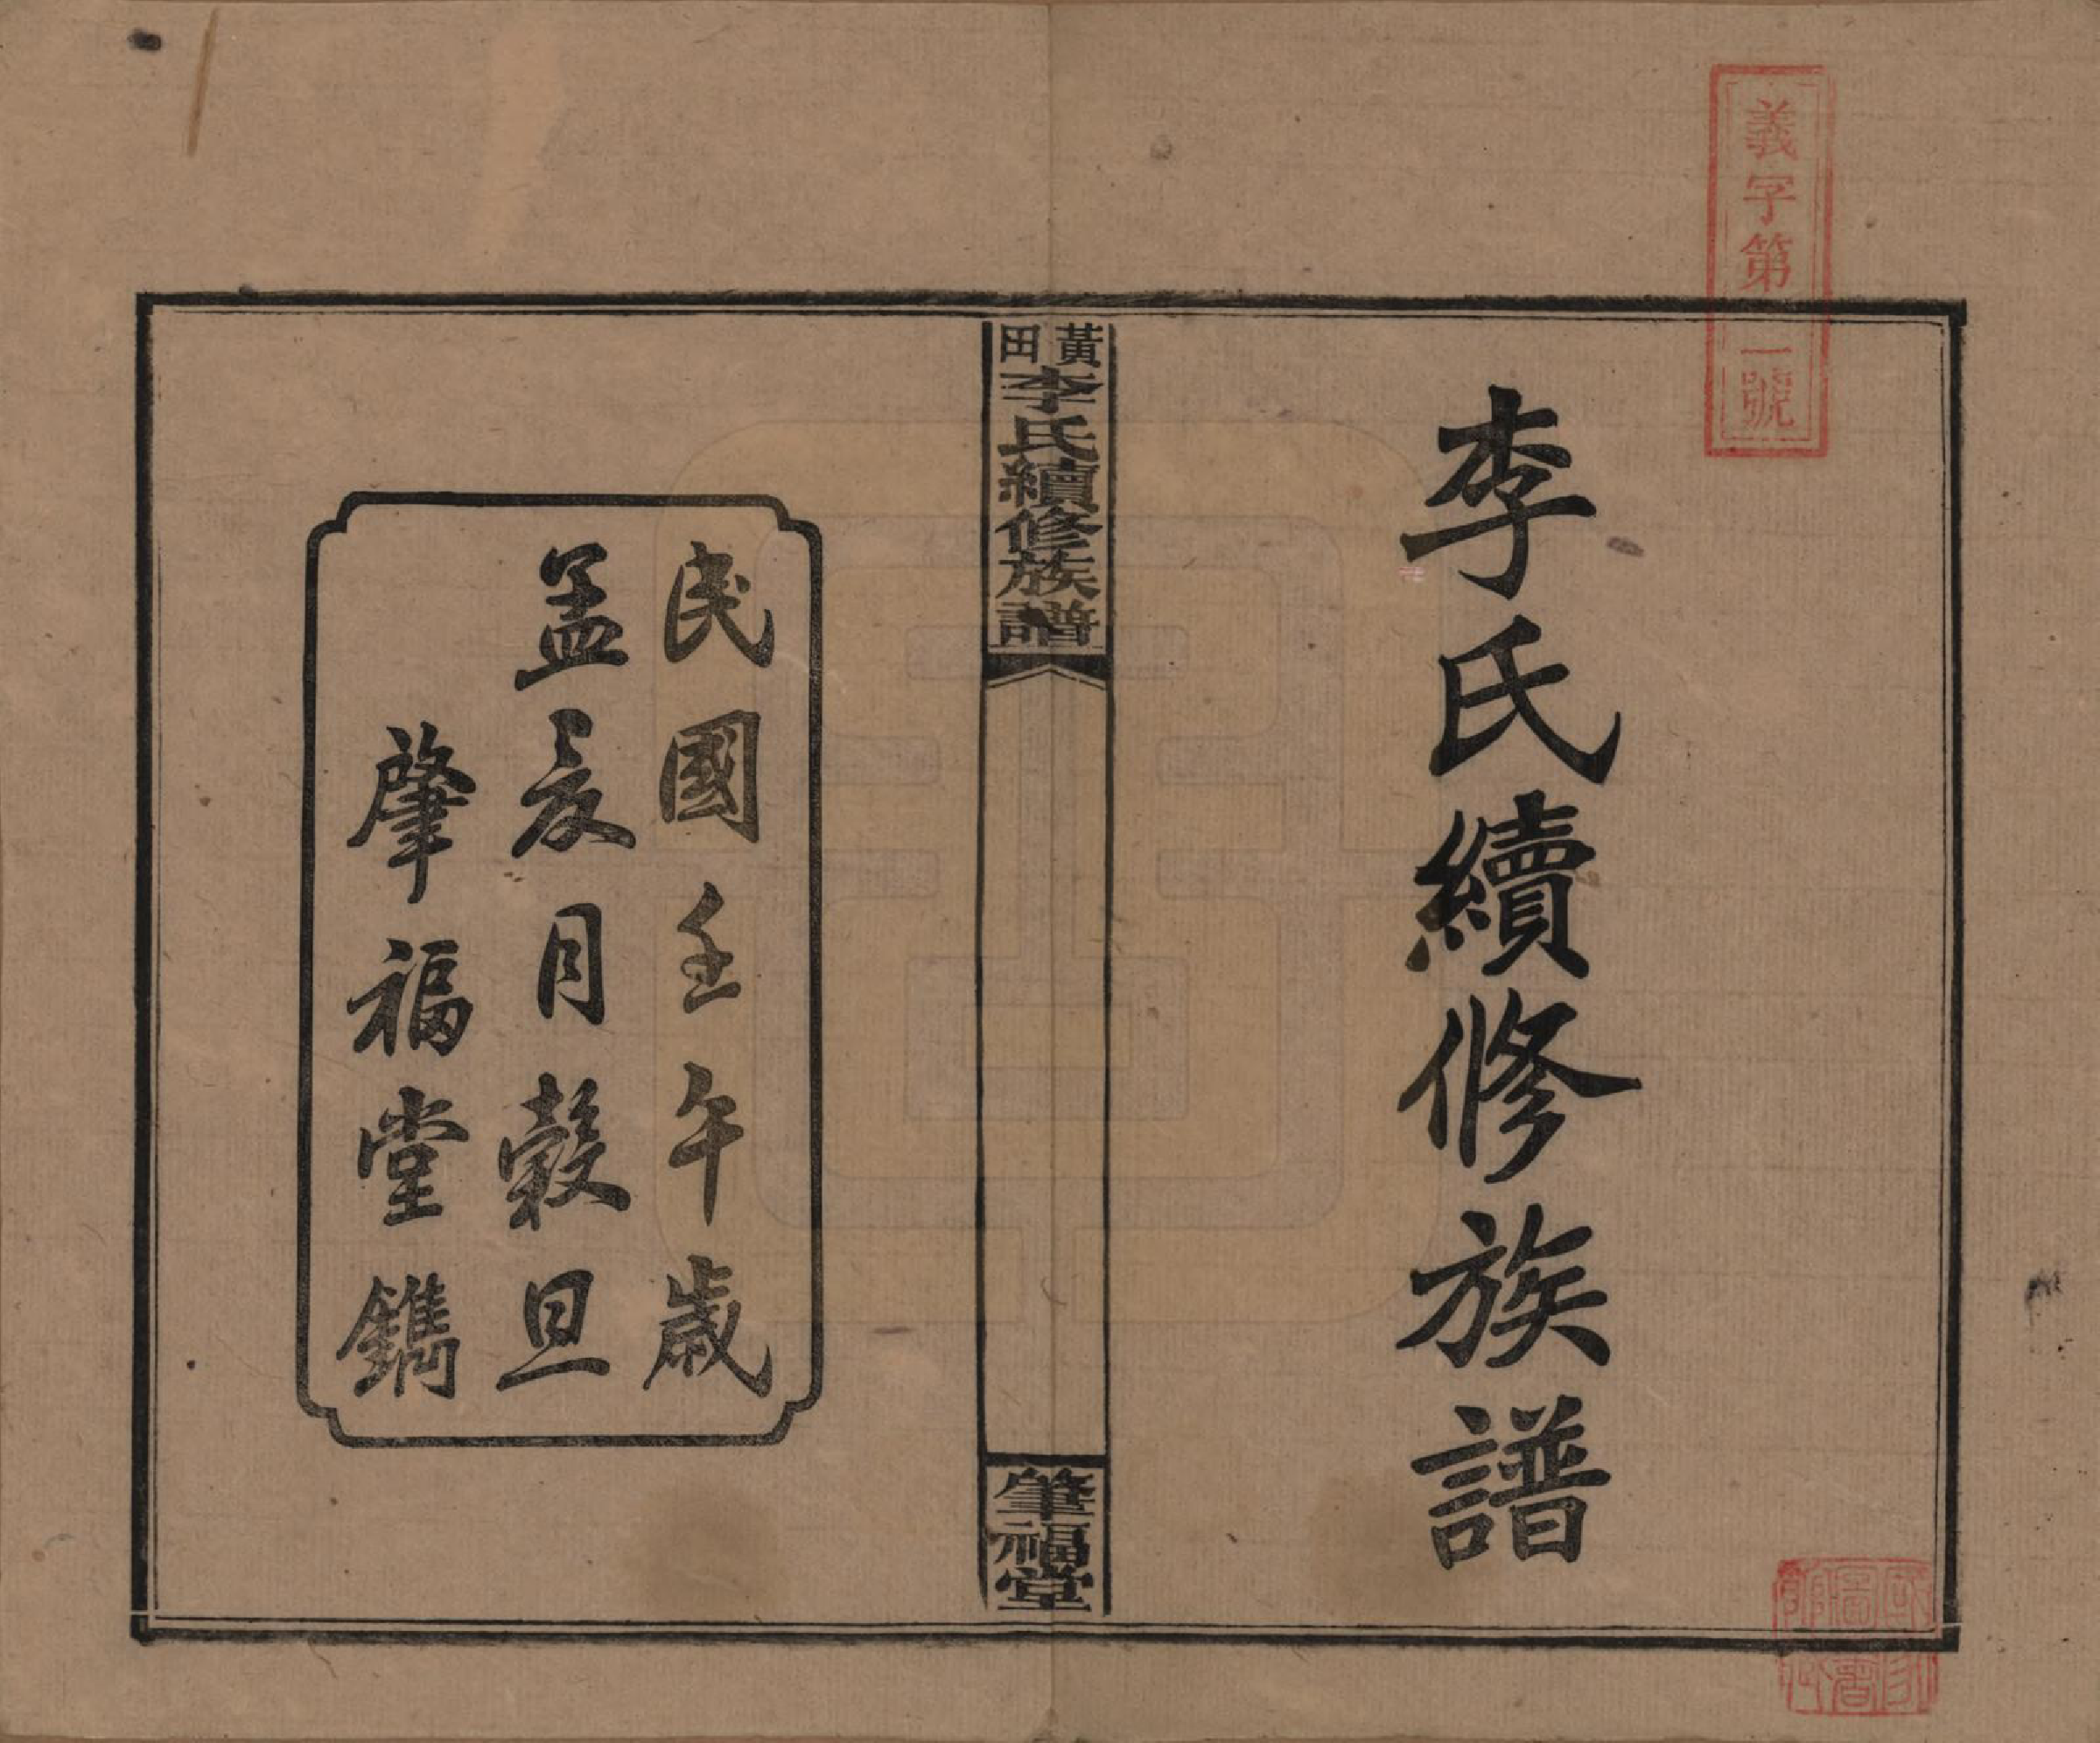 義字第一號
李氏續修族譜
黃田李氏續修族譜
肇福堂
民國壬午歲
孟夏月穀旦
肇福堂鐫